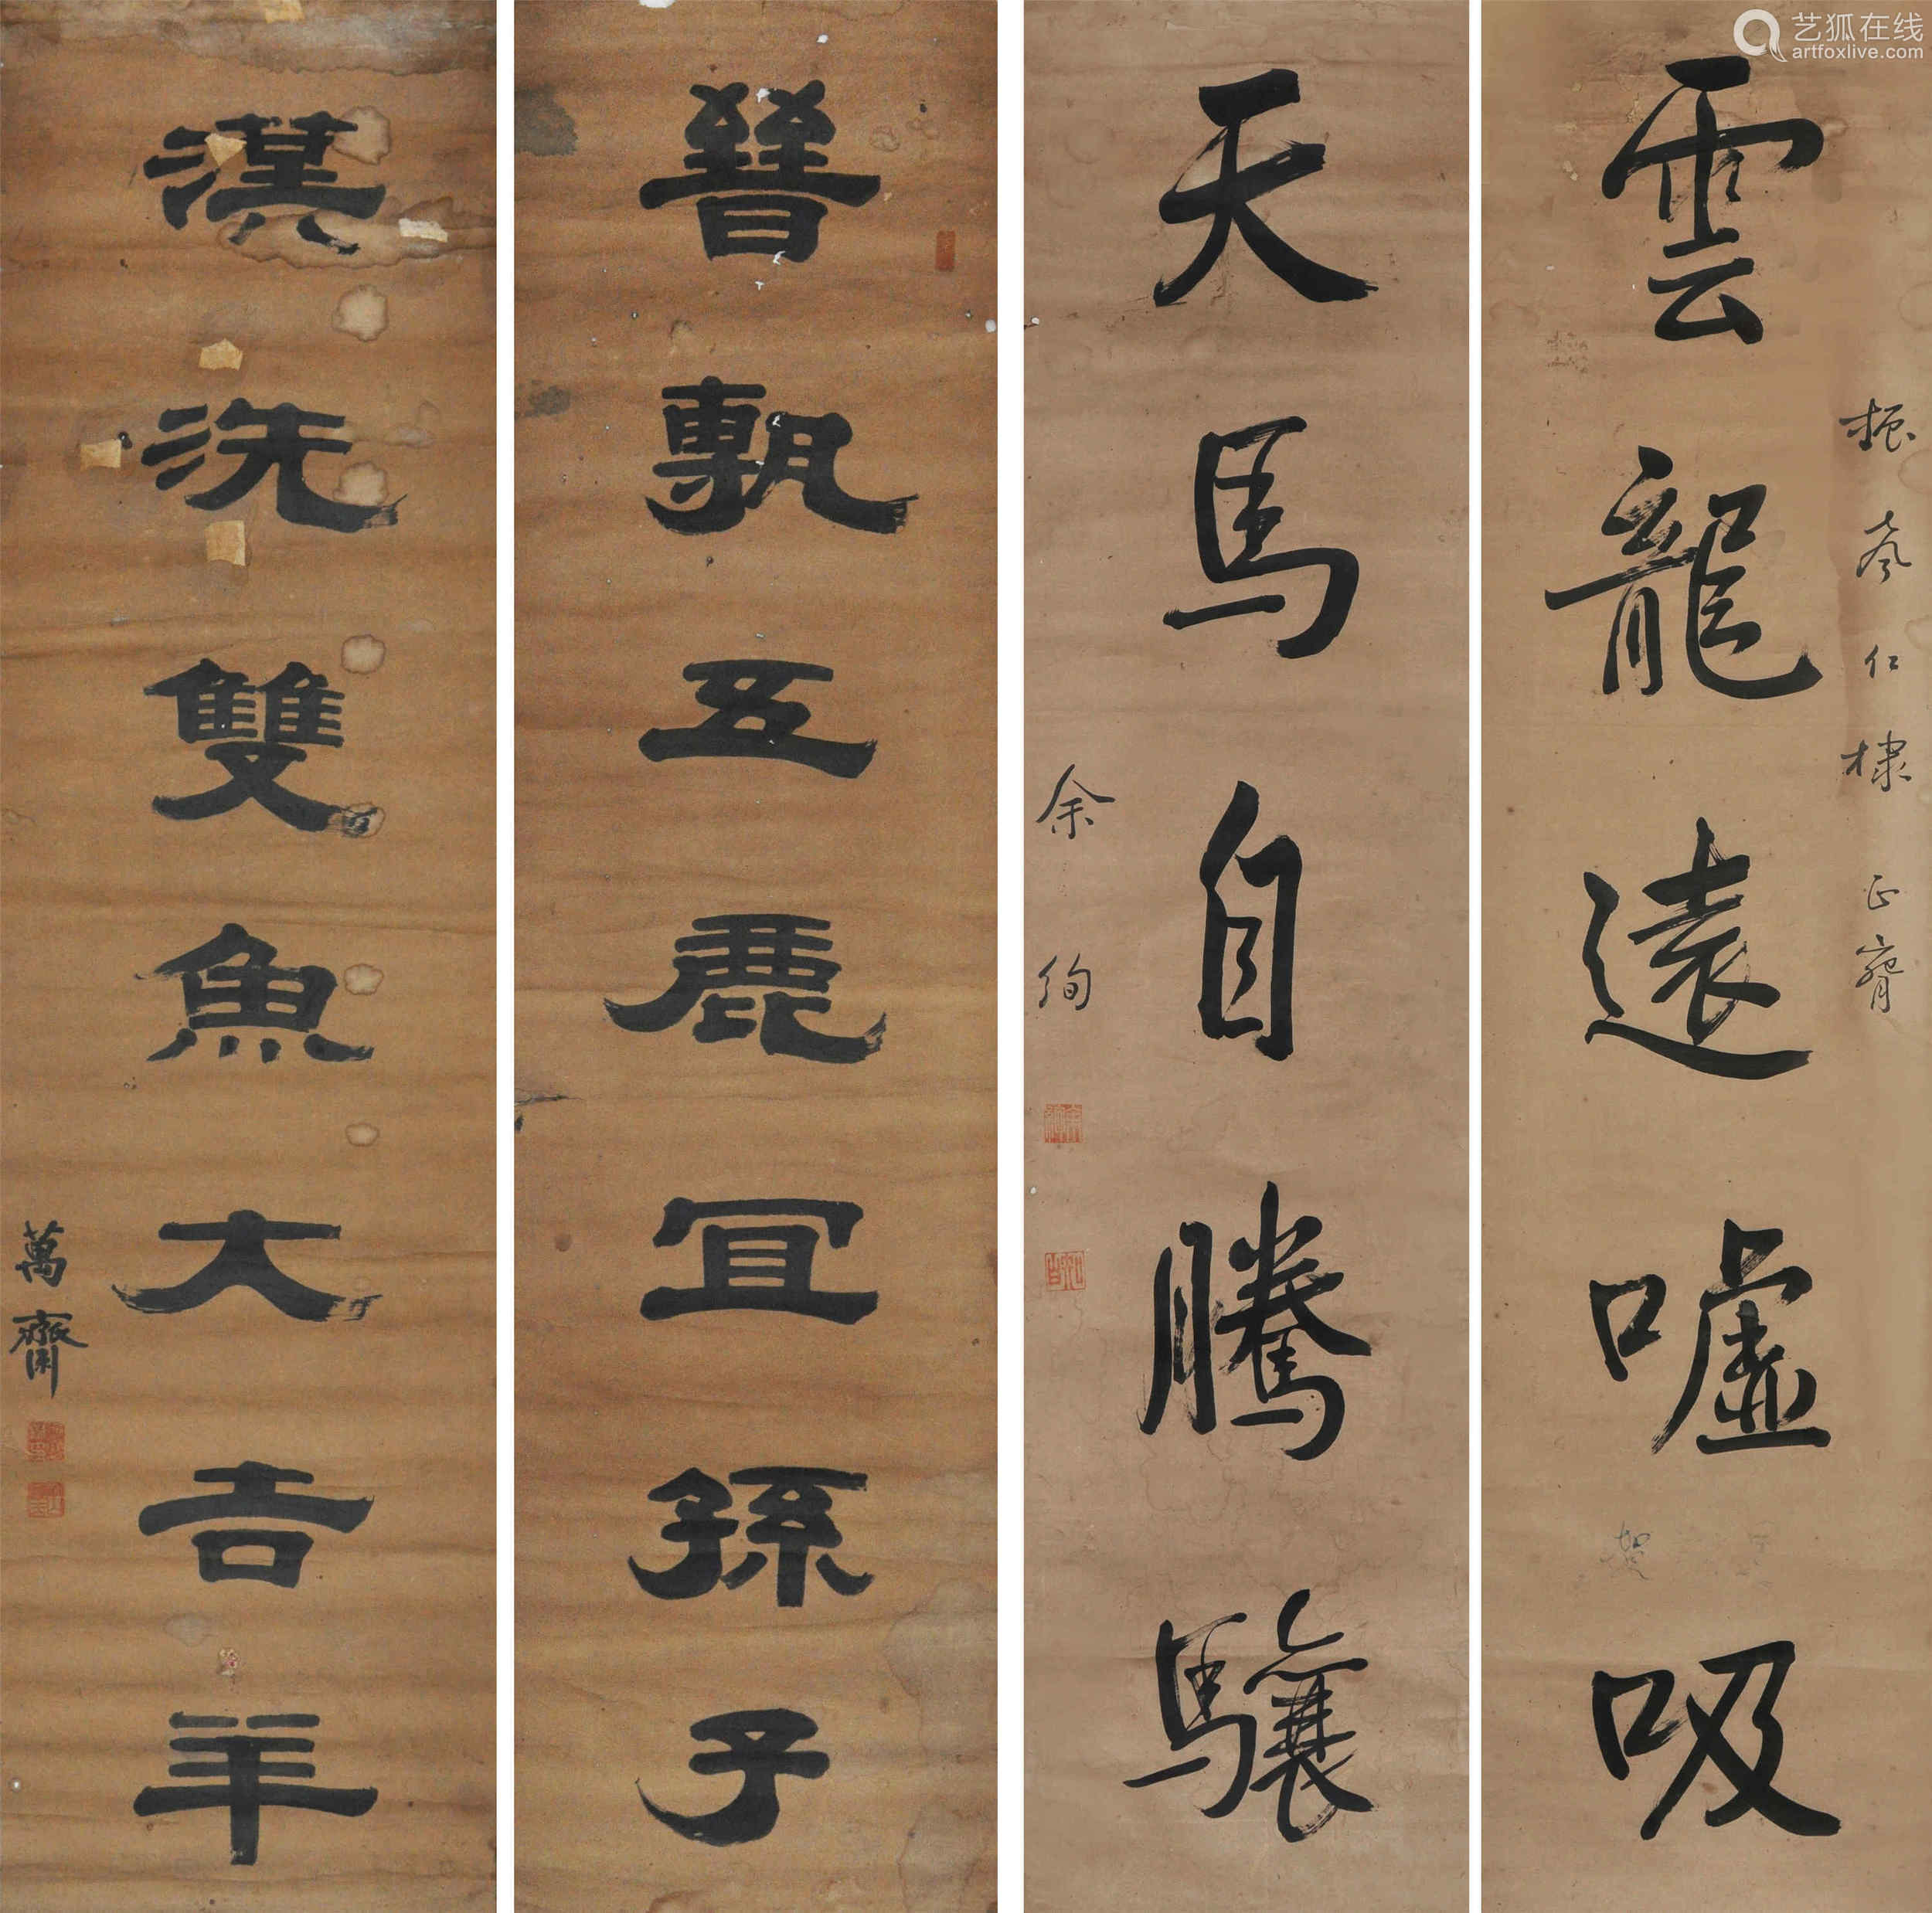 艺狐在线
artfoxlive.com
振仁棣正
雲龍遠噓吸
天馬自騰驤
余絢
晉甎五鹿宜孫子
漢洗雙魚大吉羊
萬齋